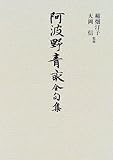 稲畑汀子
大岡 信 監修
阿波野青畝全句集